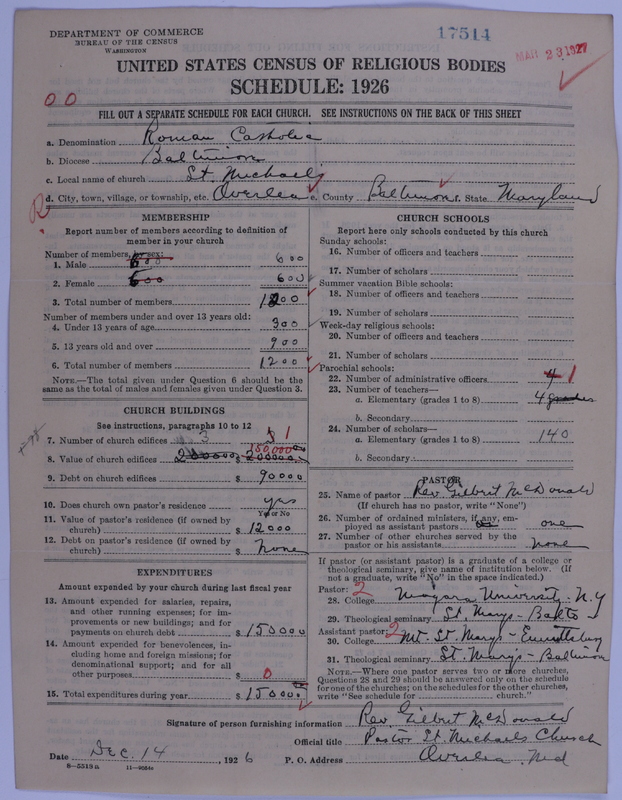 DEPARTMENT OF COMMERCE
BUREAU OF THE CENSUS
WASHINGTON
17514
MAR 23 1927
UNITED STATES CENSUS OF RELIGIOUS BODIES
SCHEDULE: 1926
00
FILL OUT A SEPARATE SCHEDULE FOR EACH CHURCH. SEE INSTRUCTIONS ON THE BACK OF THIS SHEET
a. Denomination Roman Catholic
b. Diocese Baltimore
c. Local name of church St. Michael's
d. City, town, village, or township, etc. Overlea e. County Baltimore f. State Maryland
MEMBERSHIP
Report number of members according to definition of
member in your church
Number of members, by sex:
1. Male 600 600
2. Female 600 600
3. Total number of members 1200
Number of members under and over 13 years old:
4. Under 13 years of age 300
5. 13 years old and over 900
6. Total number of members 1200
NOTE.—The total given under Question 6 should be the
same as the total of males and females given under Question 3.
CHURCH BUILDINGS
See instructions, paragraphs 10 to 12
7. Number of church edifices 3 1
8. Value of church edifices 200000 $ 200000 150,000
9. Debt on church edifices $ 90000
10. Does church own pastor's residence yes
Yes or No
11. Value of pastor's residence (if owned by
church) $ 12000
12. Debt on pastor's residence (if owned by
church) $ none
EXPENDITURES
Amount expended by your church during last fiscal year
13. Amount expended for salaries, repairs,
and other running expenses; for im-
provements or new buildings; and for
payments on church debt $ 15000
14. Amount expended for benevolences, in-
cluding home and foreign missions; for
denominational support; and for all
other purposes $ 0
15. Total expenditures during year $ 15000
CHURCH SCHOOLS
Report here only schools conducted by this church
Sunday schools:
16. Number of officers and teachers
17. Number of scholars
Summer vacation Bible schools:
18. Number of officers and teachers
19. Number of scholars
Week-day religious schools:
20. Number of officers and teachers
21. Number of scholars
Parochial schools:
22. Number of administrative officers 4 1
23. Number of teachers—
a. Elementary (grades 1 to 8) 4 grades
b. Secondary
24. Number of scholars—
a. Elementary (grades 1 to 8) 140
b. Secondary
PASTOR
25. Name of pastor Rev. Gilbert McDonald
(If church has no pastor, write "None")
26. Number of ordained ministers, if any, em-
ployed as assistant pastors one
27. Number of other churches served by the
pastor or his assistants none
If pastor (or assistant pastor) is a graduate of a college or
theological seminary, give name of institution below. (If
not a graduate, write "No" in the space indicated.)
Pastor: 2
28. College Niagara University N.Y
29. Theological seminary St. Mary's - Balto
Assistant pastor: 2
30. College Mt. St. Mary's - Emmittsburg
31. Theological seminary St. Mary's - Baltimore
NOTE.—Where one pastor serves two or more churches,
Questions 28 and 29 should be answered only on the schedule
for one of the churches; on the schedules for the other churches,
write "See schedule for church."
Signature of person furnishing information Rev. Gilbert McDonald
Official title Pastor St. Michaels Church
Date Dec. 14, 1926 P. O. Address Overlea Md
8—5513a 11—9554